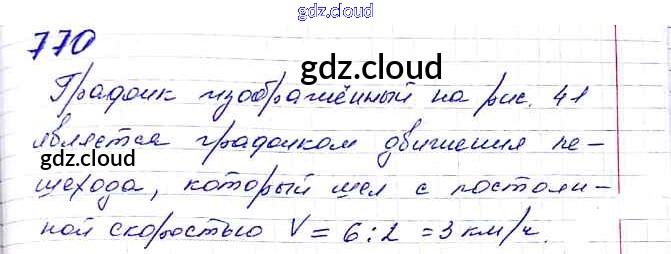 gdz.cloud
770
gdz.cloud
График изображённый на рис. 41
является графиком движения пе-
gdz.cloud
шехода, который шёл с постоян-
ной скоростью V = 6:2 = 3 км/ч.